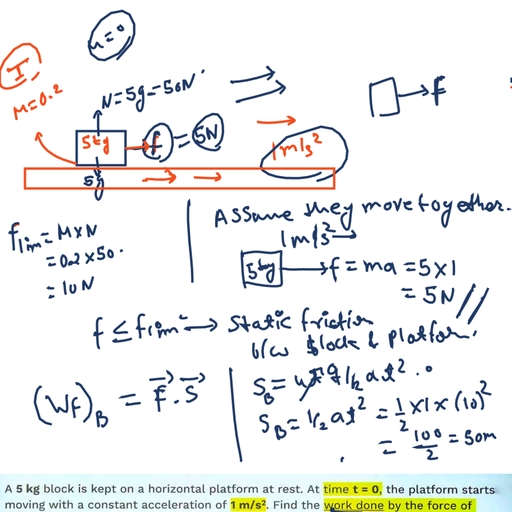 u=0
I
M=0.2
N=5g=50N
5kg
f = 5N
1m/s²
F
5g
flim = M×N
= 0.2×50.
= 10N
Assume they move together.
1m/s²
5kg f = ma = 5×1
= 5N //
f ≤ flim → Static friction
b/w block & platform.
(Wf)B = F.S
SB = ut + 1/2 at².
SB = 1/2 at² = 1/2 ×1×(10)²
= 100/2 = 50m
A 5 kg block is kept on a horizontal platform at rest. At time t = 0, the platform starts
moving with a constant acceleration of 1 m/s². Find the work done by the force of